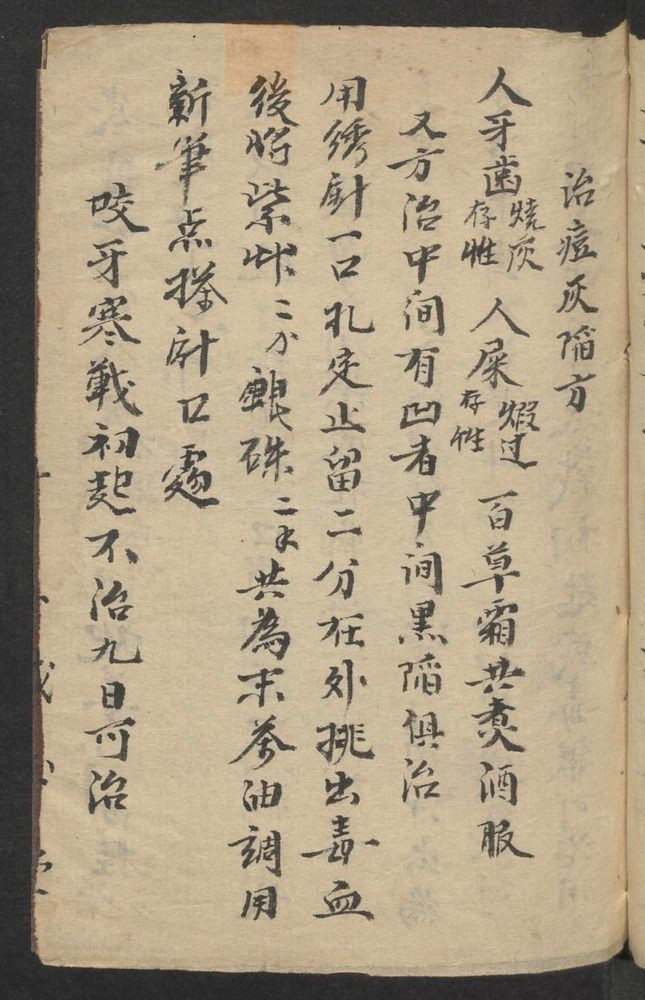 治痘灰陷方
人牙齒燒灰存性 人屎煆过存性 百草霜共煑酒服
又方治中间有凹者中间黑陷俱治
用綉針一口扎定止留二分在外挑出毒血
後将紫艸二分 硃二 共為末茶油調用
新筆点搽針口處
咬牙寒戰初起不治九日可治